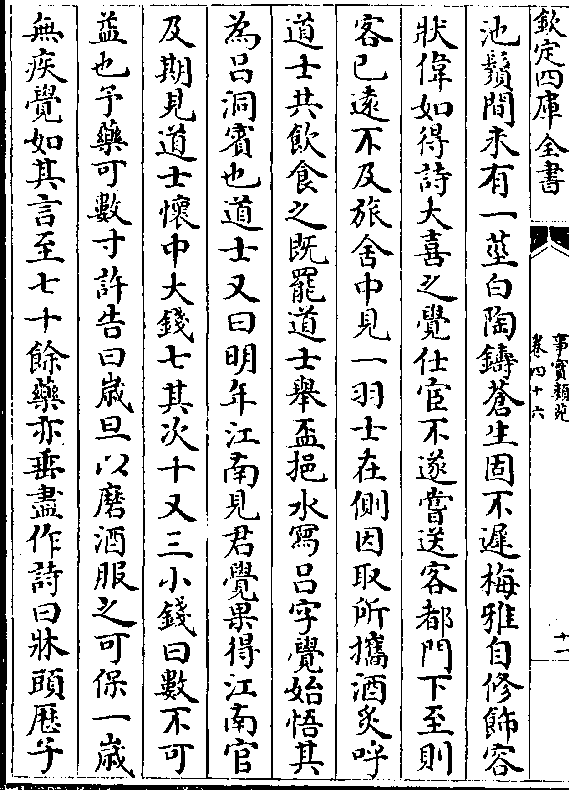 欽定四庫全書
事實類苑
卷四十六
十一
池鬚間未有一莖白陶鑄蒼生固不遲梅雅自修飾容
狀偉如得詩大喜之覺仕宦不遂嘗送客都門下至則
客已遠不及旅舍中見一羽士在側因取所攜酒炙呼
道士共飲食之既罷道士舉盃挹水寫呂字覺始悟其
為呂洞賓也道士又曰明年江南見君覺果得江南官
及期見道士懷中大錢七其次十又三小錢曰數不可
益也予藥可數寸許告曰歲旦以磨酒服之可保一歲
無疾覺如其言至七十餘藥亦垂盡作詩曰牀頭厯子